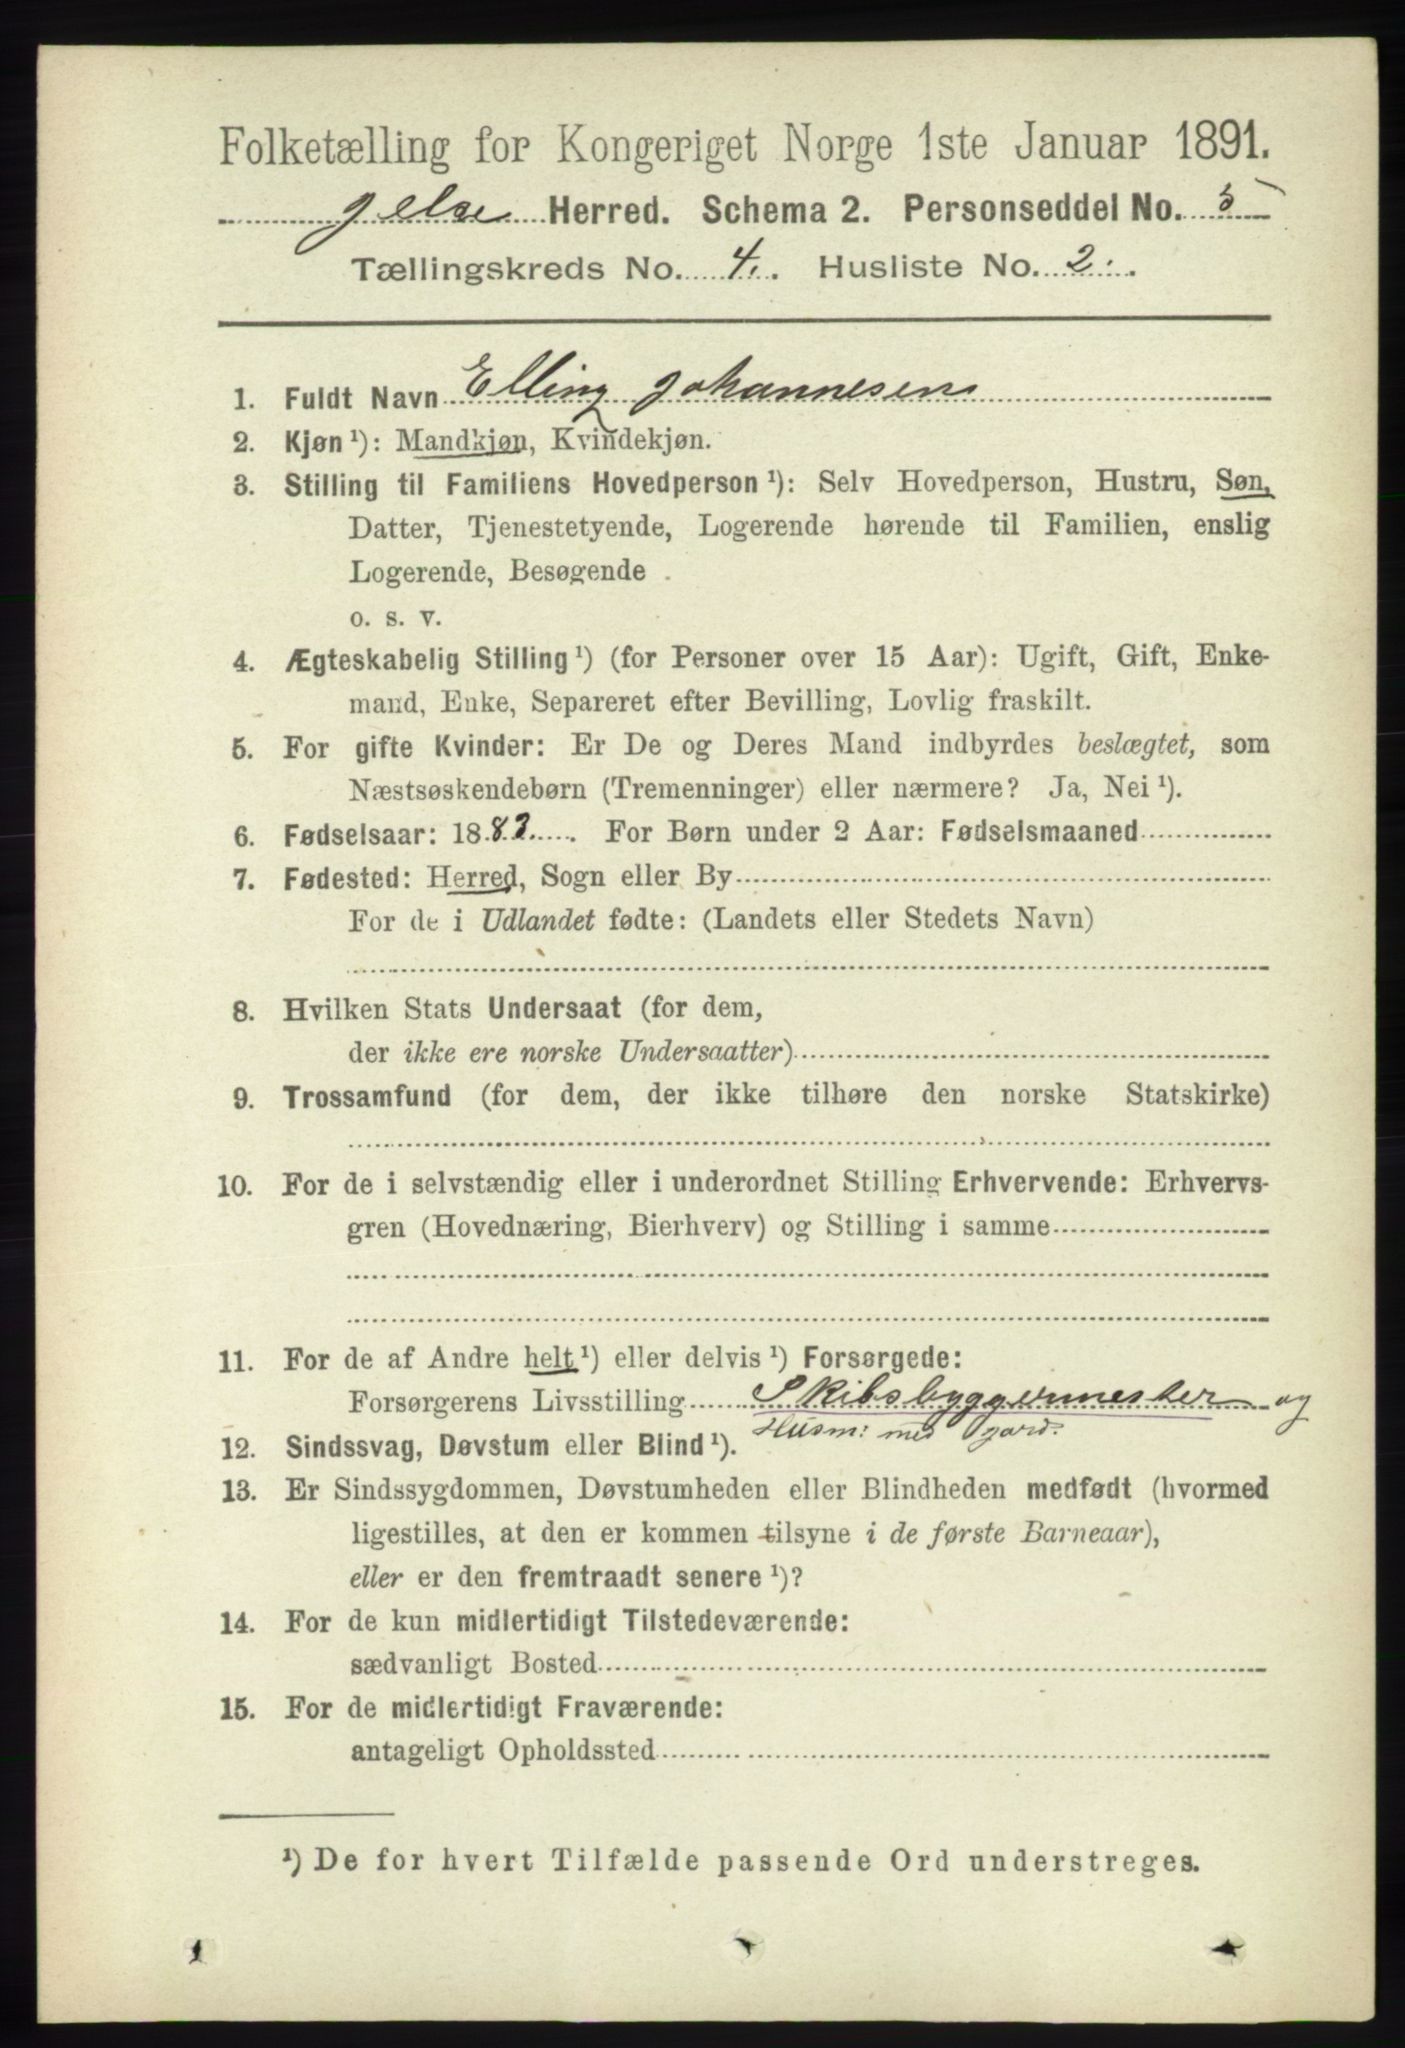 Folketælling for Kongeriget Norge 1ste Januar 1891.
Jelse Herred. Schema 2. Personseddel No. 5
Tællingskreds No. 4. Husliste No. 2.
1. Fuldt Navn Elling Johannesen
2. Kjøn ¹): Mandkjøn, Kvindekjøn.
3. Stilling til Familiens Hovedperson ¹): Selv Hovedperson, Hustru, Søn,
Datter, Tjenestetyende, Logerende hørende til Familien, enslig
Logerende, Besøgende .
o. s. v.
4. Ægteskabelig Stilling ¹) (for Personer over 15 Aar): Ugift, Gift, Enke-
mand, Enke, Separeret efter Bevilling, Lovlig fraskilt.
5. For gifte Kvinder: Er De og Deres Mand indbyrdes beslægtet, som
Næstsøskendebørn (Tremenninger) eller nærmere? Ja, Nei ¹).
6. Fødselsaar: 1883. For Børn under 2 Aar: Fødselsmaaned
7. Fødested: Herred, Sogn eller By
For de i Udlandet fødte: (Landets eller Stedets Navn)
8. Hvilken Stats Undersaat (for dem,
der ikke ere norske Undersaatter)
9. Trossamfund (for dem, der ikke tilhøre den norske Statskirke)
10. For de i selvstændig eller i underordnet Stilling Erhvervende: Erhvervs-
gren (Hovednæring, Bierhverv) og Stilling i samme
11. For de af Andre helt ¹) eller delvis ¹) Forsørgede:
Forsørgerens Livsstilling Skibsbyggermester og
Husm: med jord.
12. Sindssvag, Døvstum eller Blind ¹).
13. Er Sindssygdommen, Døvstumheden eller Blindheden medfødt (hvormed
ligestilles, at den er kommen tilsyne i de første Barneaar),
eller er den fremtraadt senere ¹)?
14. For de kun midlertidigt Tilstedeværende:
sædvanligt Bosted
15. For de midlertidigt Fraværende:
antageligt Opholdssted
¹) De for hvert Tilfælde passende Ord understreges.